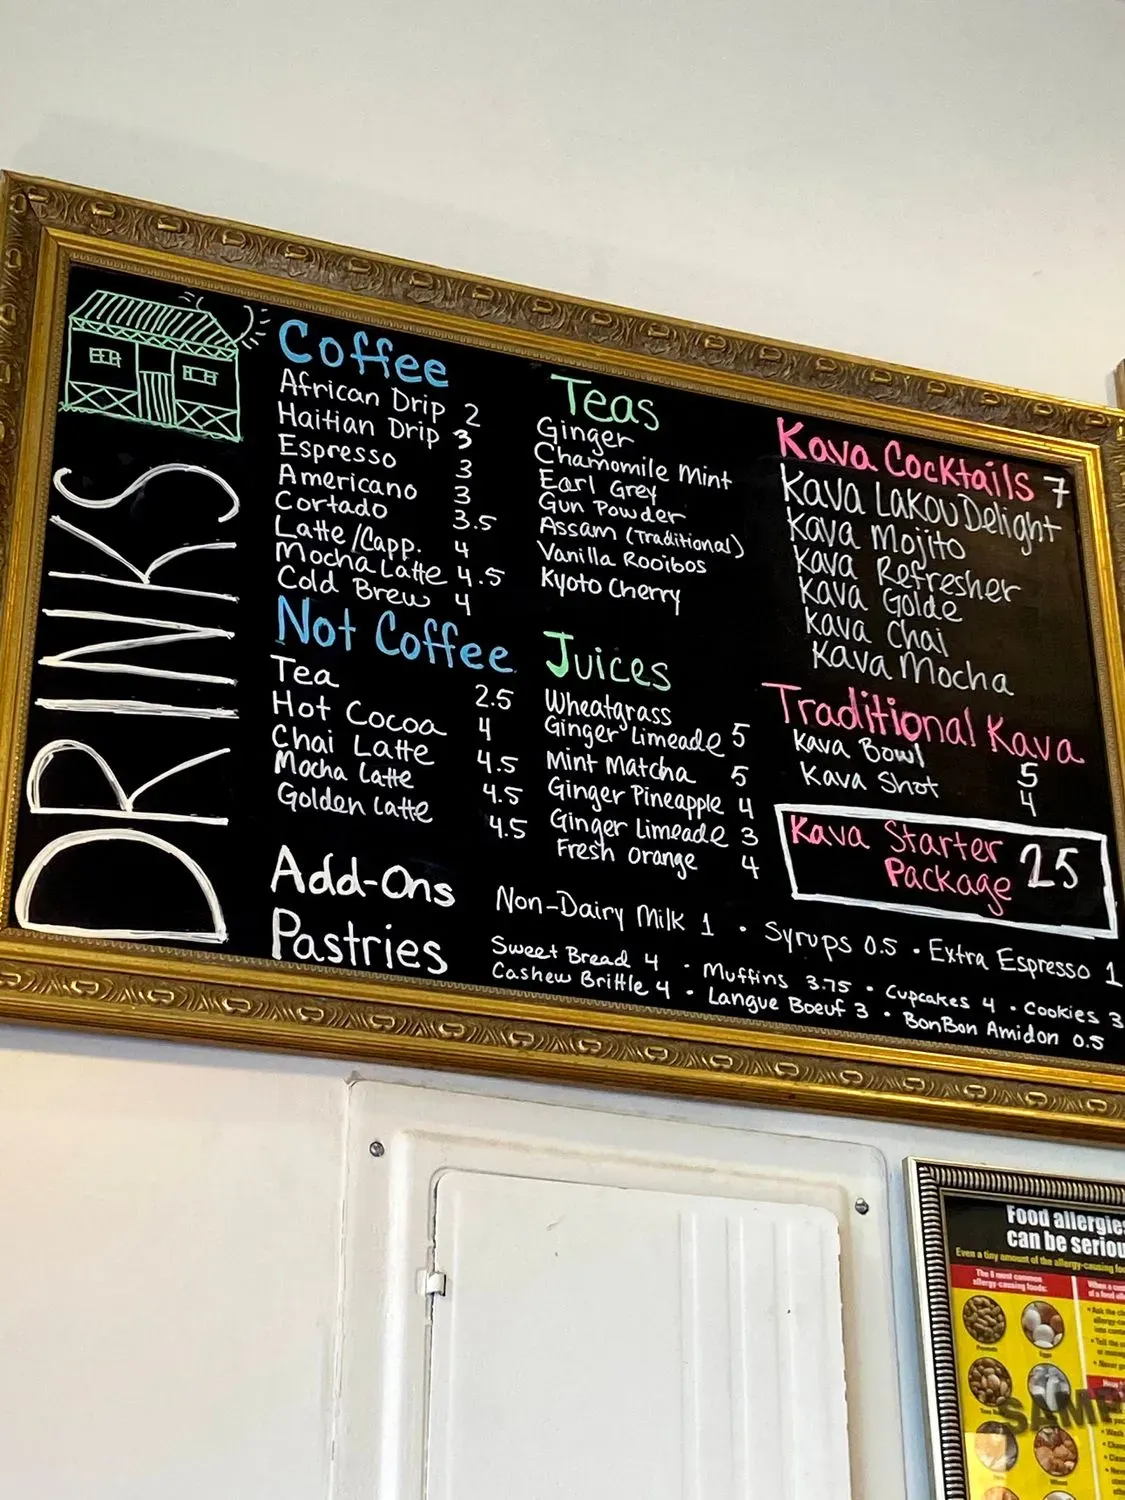 DRINKS
Coffee
African Drip 2
Haitian Drip 3
Espresso 3
Americano 3
Cortado 3.5
Latte/Capp. 4
Mocha Latte 4.5
Cold Brew 4
Not Coffee
Tea 2.5
Hot Cocoa 4
Chai Latte 4.5
Mocha Latte 4.5
Golden Latte 4.5
Teas
Ginger
Chamomile Mint
Earl Grey
Gun Powder
Assam (Traditional)
Vanilla Rooibos
Kyoto Cherry
Juices
Wheatgrass
Ginger Limeade 5
Mint Matcha 5
Ginger Pineapple 4
Ginger Limeade 3
Fresh Orange 4
Kava Cocktails 7
Kava LAKOU Delight
Kava Mojito
Kava Refresher
Kava Golde
Kava Chai
Kava Mocha
Traditional Kava
Kava Bowl 5
Kava Shot 4
Kava Starter
Package 25
Add-Ons Non-Dairy Milk 1 · Syrups 0.5 · Extra Espresso 1
Pastries Sweet Bread 4 · Muffins 3.75 · Cupcakes 4 · Cookies 3
Cashew Brittle 4 · Langue Boeuf 3 · BonBon Amidon 0.5
Food allergie
can be seriou
Even a tiny amount of the allergy-causing fo
The 8 most common
allergy-causing foods:
Peanuts
Eggs
Wheat
SAMP